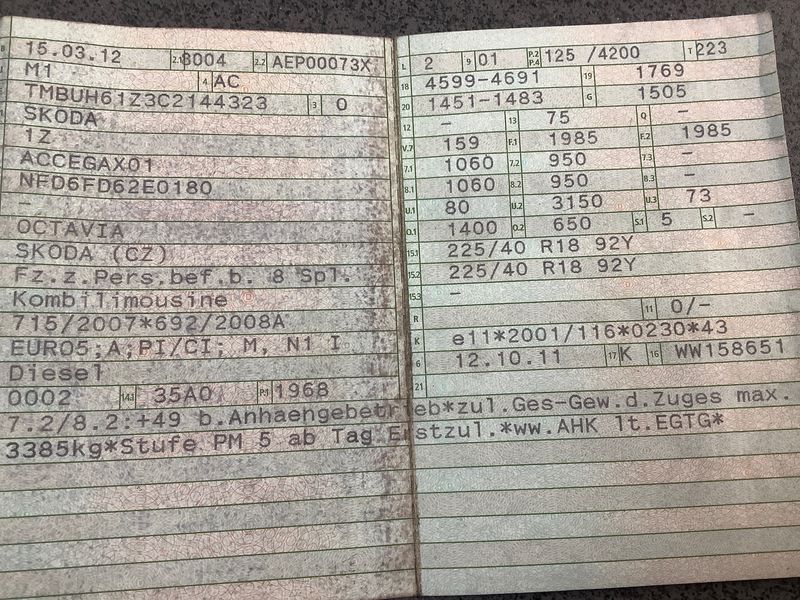 B 15.03.12 2.1 8004 2.2 AEP00073X
J M1 4 AC
E TMBUH61Z3C2144323 3 0
SKODA
1Z
ACCEGAX01
NFD6FD62E0180
–
OCTAVIA
SKODA (CZ)
Fz.z.Pers.bef.b. 8 Spl.
Kombilimousine
715/2007*692/2008A
EURO5;A;PI/CI; M, N1 I
Diesel
0002 14.1 35A0 P.1 1968
L 2 9 01 P.2 P.4 125 /4200 T 223
18 4599-4691 19 1769
20 1451-1483 G 1505
12 – 13 75 Q –
V.7 159 F.1 1985 F.2 1985
7.1 1060 7.2 950 7.3 –
8.1 1060 8.2 950 8.3 –
U.1 80 U.2 3150 U.3 73
O.1 1400 O.2 650 S.1 5 S.2 –
15.1 225/40 R18 92Y
15.2 225/40 R18 92Y
15.3 –
R 11 0/-
K e11*2001/116*0230*43
6 12.10.11 17 K 16 WW158651
21
7.2/8.2:+49 b.Anhaengebetrieb*zul.Ges-Gew.d.Zuges max.
3385kg*Stufe PM 5 ab Tag Erstzul.*ww.AHK lt.EGTG*